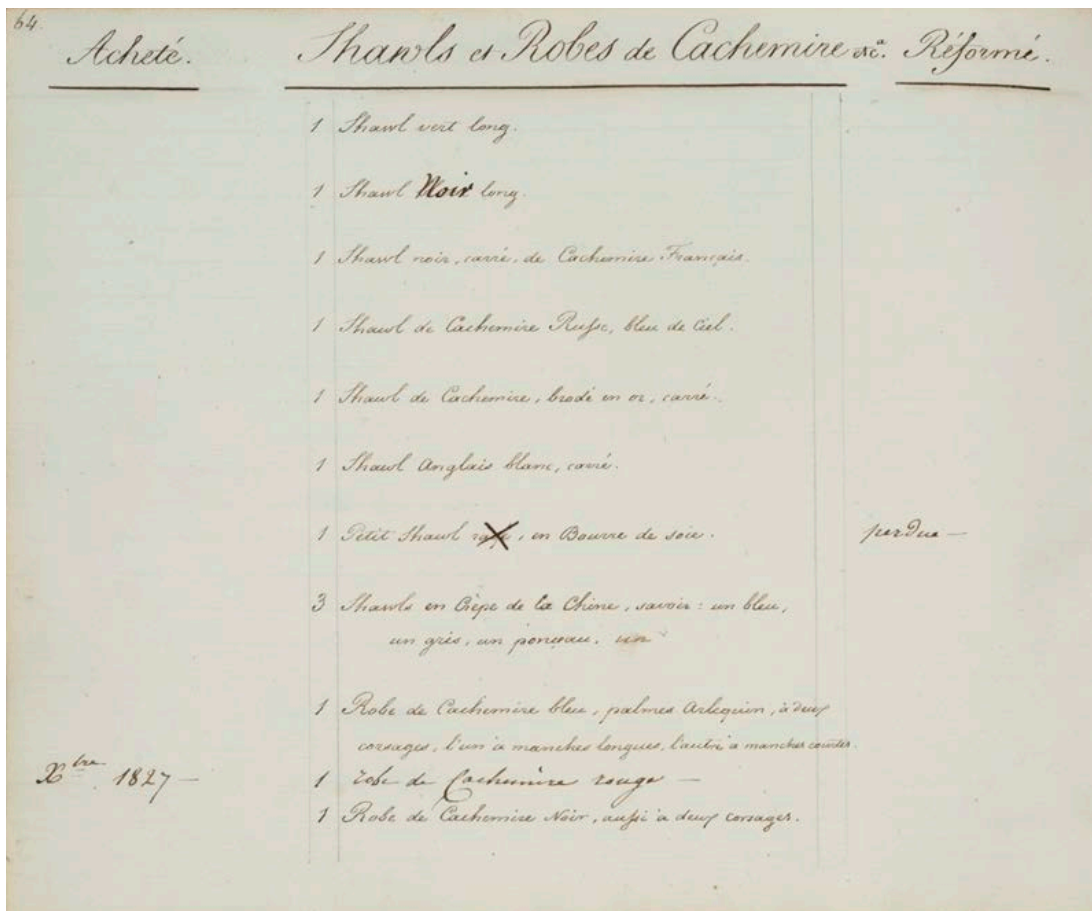 64.
Acheté. Shawls et Robes de Cachemire &c.ª Réformé.
1 Shawl vert long.
1 Shawl Noir long.
1 Shawl noir, carré, de Cachemire Français.
1 Shawl de Cachemire Russe, bleu de Ciel.
1 Shawl de Cachemire, brodé en or, carré.
1 Shawl Anglais blanc, carré.
1 Petit Shawl , en Bourre de soie. perdue —
3 Shawls en Crèpe de la Chine, savoir : un bleu,
un gris, un ponçeau, un
1 Robe de Cachemire bleu, palmes Arlequin, à deux
corsages, l'un à manches longues, l'autre à manches courtes.
Xbre 1827 — 1 robe de Cachemire rouge —
1 Robe de Cachemire Noir, aussi à deux corsages.